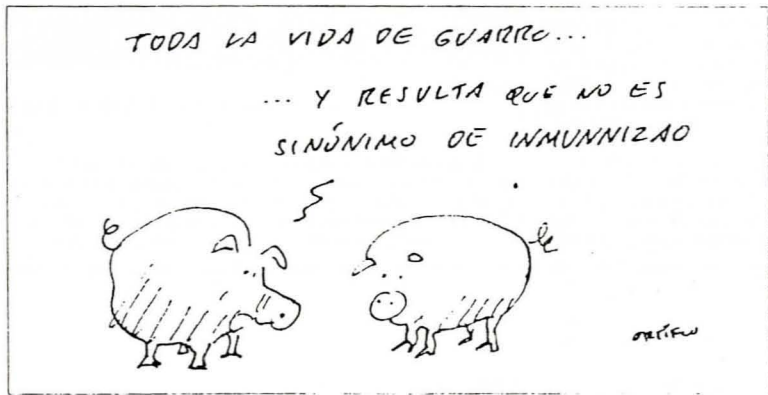 TODA LA VIDA DE GUARRO...
... Y RESULTA QUE NO ES
SINÓNIMO DE INMUNNIZAO